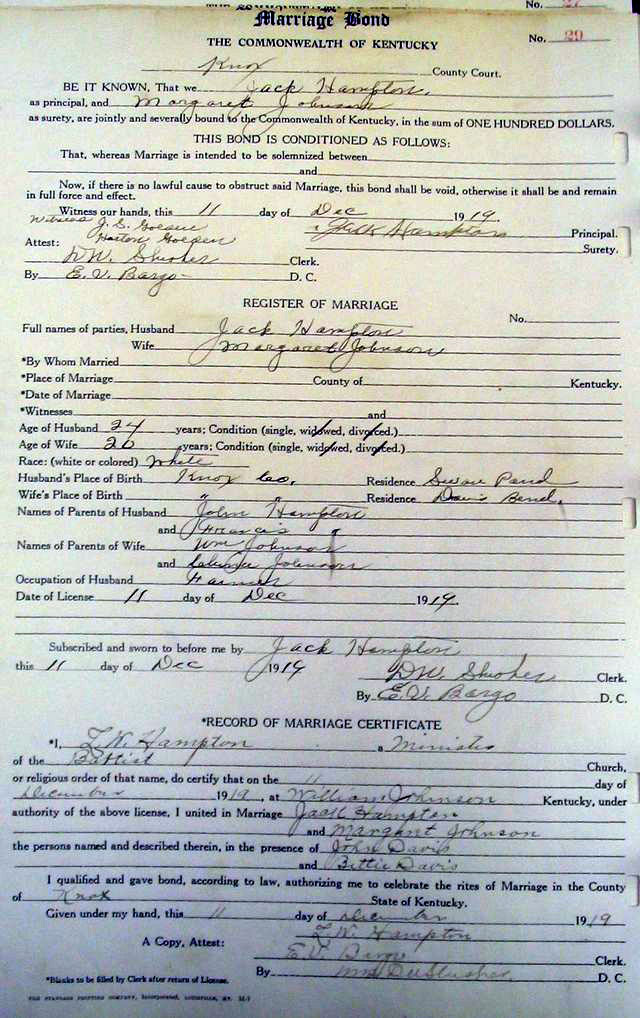 No. 27
Marriage Bond
THE COMMONWEALTH OF KENTUCKY
No. 29
Knox County Court.
BE IT KNOWN, That we Jack Hampton,
as principal, and Margaret Johnson
as surety, are jointly and severally bound to the Commonwealth of Kentucky, in the sum of ONE HUNDRED DOLLARS.
THIS BOND IS CONDITIONED AS FOLLOWS:
That, whereas Marriage is intended to be solemnized between
and
Now, if there is no lawful cause to obstruct said Marriage, this bond shall be void, otherwise it shall be and remain
in full force and effect.
Witness our hands, this 11 day of Dec 1919.
Witness J. S. Golden
Jack Hampton Principal.
Attest: Golden
Surety.
D.W. Clerk.
By E. V. Bargo D. C.
REGISTER OF MARRIAGE
No.
Full names of parties, Husband Jack Hampton
Wife Margaret Johnson
*By Whom Married
*Place of Marriage County of Kentucky.
*Date of Marriage
*Witnesses and
Age of Husband 24 years; Condition (single, widowed, divorced.)
Age of Wife 20 years; Condition (single, widowed, divorced.)
Race: (white or colored) White
Husband's Place of Birth Knox Co. Residence Swan Pond
Wife's Place of Birth " " Residence Davis Bend.
Names of Parents of Husband John Hampton
and Francis "
Names of Parents of Wife Wm Johnson
and Johnson
Occupation of Husband Farmer
Date of License 11 day of Dec 1919.
Subscribed and sworn to before me by Jack Hampton
this 11 day of Dec 1919
D.W. Clerk.
By E. V. Bargo D. C.
*RECORD OF MARRIAGE CERTIFICATE
*I, Hampton a Minister
of the Baptist Church,
or religious order of that name, do certify that on the 11 day of
December 1919, at William Johnson Kentucky, under
authority of the above license, I united in Marriage Jack Hampton
and Margant Johnson
the persons named and described therein, in the presence of John Davis
and Bettie Davis
I qualified and gave bond, according to law, authorizing me to celebrate the rites of Marriage in the County
of Knox State of Kentucky.
Given under my hand, this 11 day of December 1919
Hampton
A Copy, Attest: E. V. Bargo Clerk.
By D. C.
*Blanks to be filled by Clerk after return of License.
THE STANDARD PRINTING COMPANY, Incorporated, LOUISVILLE, KY.